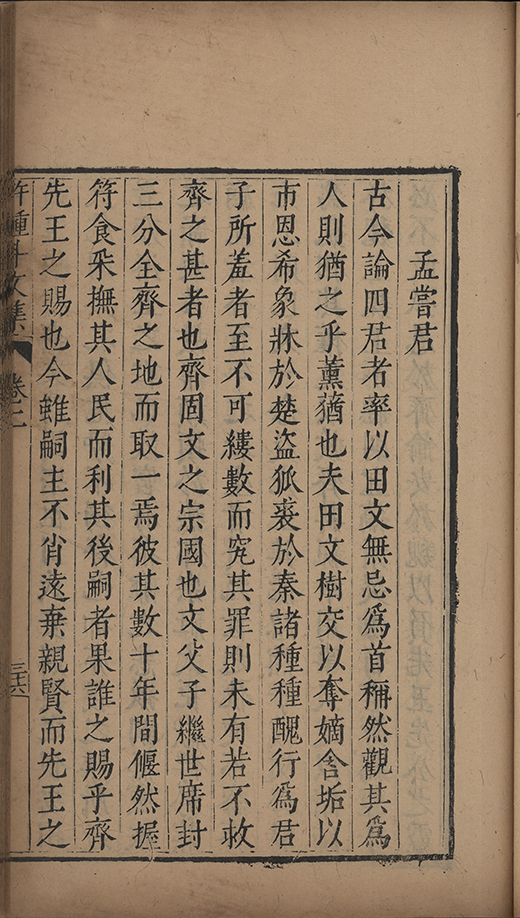 孟嘗君
古今論四君者率以田文無忌爲首稱然觀其爲
人則猶之乎薰蕕也夫田文樹交以奪嫡含垢以
市恩希象牀於楚盜狐裘於秦諸種種醜行爲君
子所羞者至不可縷數而究其罪則未有若不救
齊之甚者也齊固文之宗國也文父子繼世席封
三分全齊之地而取一焉彼其數十年間偃然握
符食采撫其人民而利其後嗣者果誰之賜乎齊
先王之賜也今雖嗣主不肖遠棄親賢而先王之
許鍾斗文集 卷二 三十六